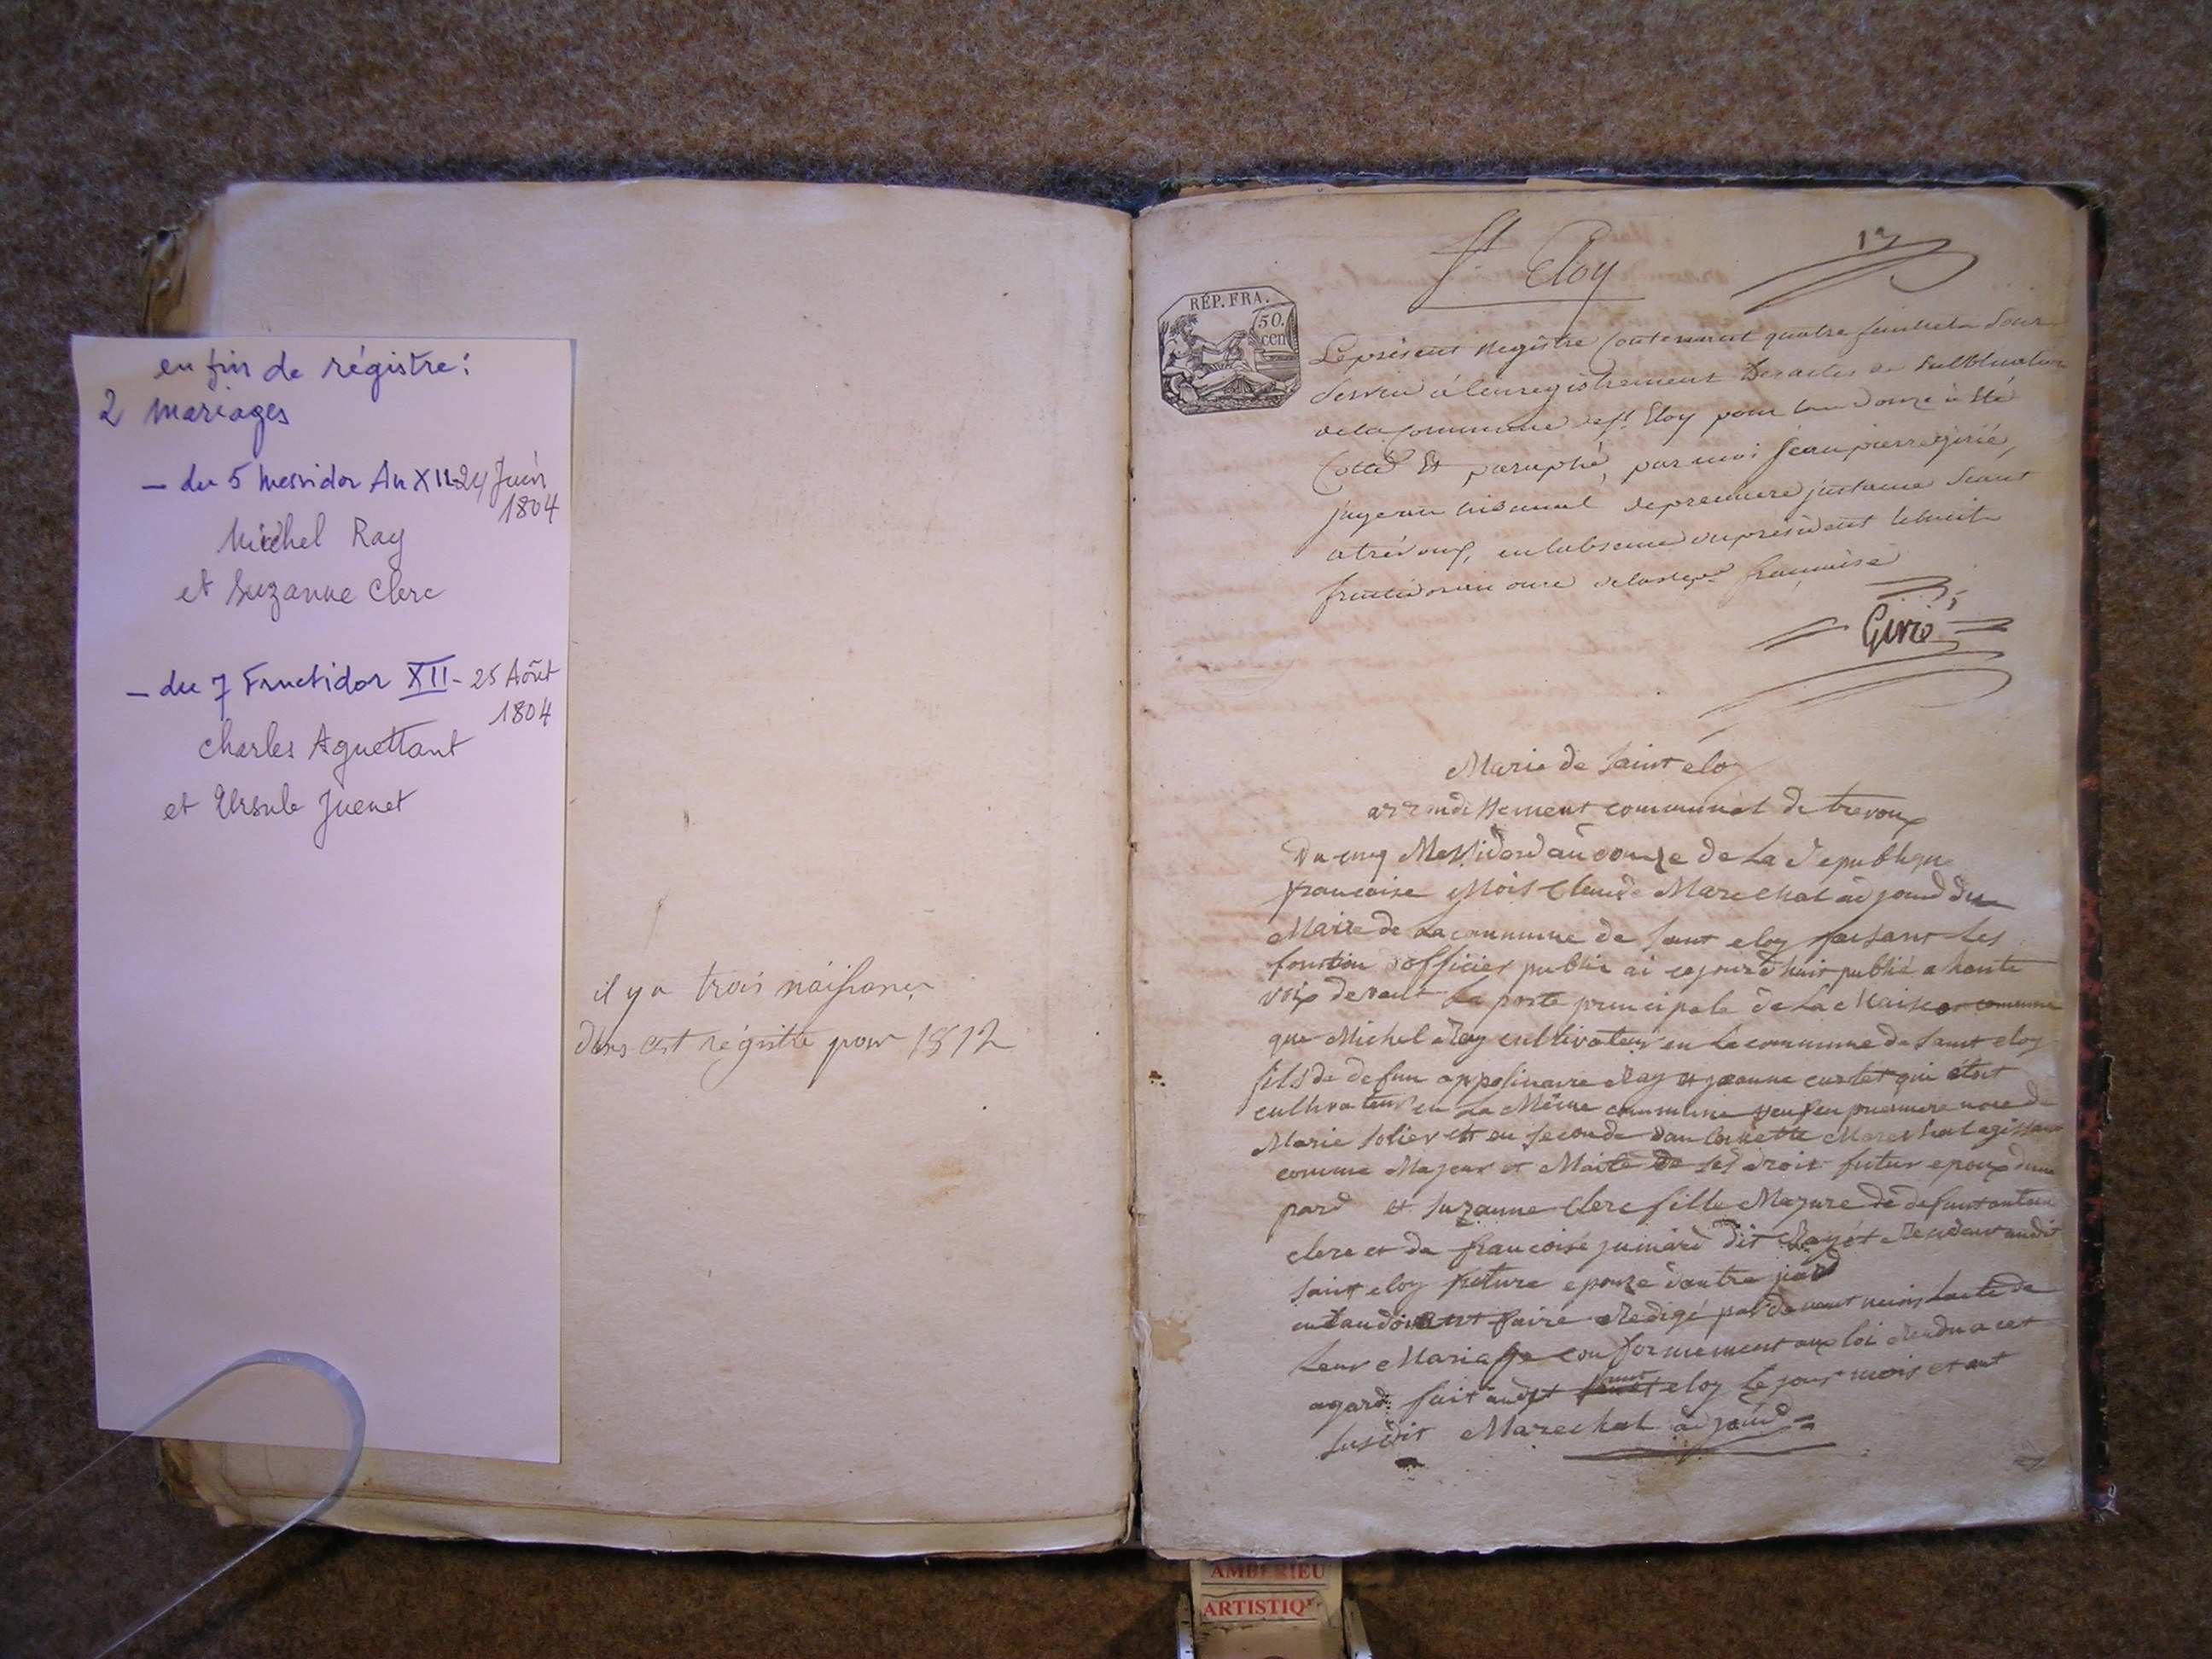 en fin de régistre:
2 mariages
- du 5 Messidor An XII - 24 Juin
1804
Michel Ray
et Suzanne Clerc
- du 7 Fructidor XII - 25 Août
1804
Charles Aguettant
et Ursule Juenet
il y a trois naissances
dans cet régistre pour 1812
St Eloy
RÉP. FRA.
50.
cen
Le présent Registre Contenant quatre feuillets
destiné à l'enregistrement Des actes de Publication
de la Commune de St Eloy pour l'an Douze à Eté
Cotté Et paraphé, par moi Jean pierre Girié,
juge au tribunal de premiere instance Séant
a trévoux, en l'absence du président le huit
fructidor an onze de la Repe française
Girié
Marie de Saint eloy
arrondissement communal de trevoux
Du cinq Messidor an douze de La Republique
francaise Mois Claude Marechal adjoind du
Maire de La commune de Saint eloy faisant Les
fonction d'officier public ai cejourd'huit publié a haute
voix devant La porte principale de La Maison commune
que Michel Ray cultivateur en La commune de Saint eloy
fils de defun appolinaire Ray et jeanne curtet qui étoit
cultivateur en La Même commune veuf en premiere noce de
Marie Solier et en seconde dan Marechal agissant
comme Majeur et Maite de ses droit futur epoux dune
pard et Suzanne Clerc fille Majure de defunt antoine
clerc et de francoise juinard dit Rayet Residant audit
saint eloy future epouze dautre pard
faire Redigé pardevant nuns Lacte de
Leur Mariage conformement aux loi Rendu a cet
agard fait audit saint eloy Le jour mois et ant
Susdit Marechal adjoind
AMBERIEU
ARTISTIQU